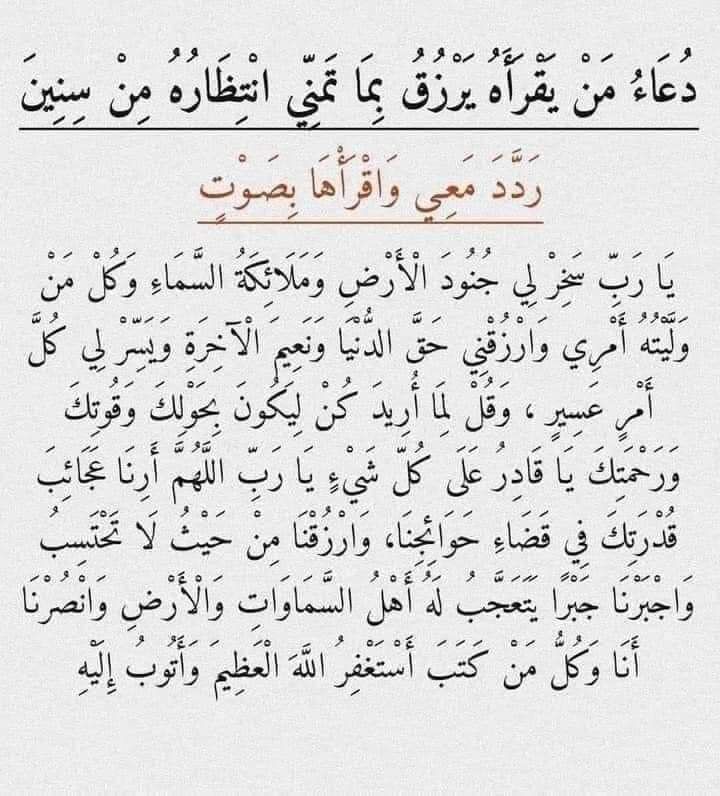 دُعَاءُ مَنْ يَقْرَأَهُ يَرْزُقُ بِمَا تَمَنِّي انْتِظَارُهُ مِنْ سِنِينَ
رَدَّدَ مَعِي وَاقْرَأْهَا بِصَوْتٍ
يَا رَبِّ سَخِرْ لِي جُنُودَ الْأَرْضِ وَمَلَائِكَةُ السَّمَاءِ وَكُلْ مَنْ
وَلَّيْتُهُ أَمْرِي وَارْزُقْنِي حَقَّ الدُّنْيَا وَنَعِيمَ الْآخِرَةِ وَيَسِّرْ لِي كُلَّ
أَمْرٍ عَسِيرٍ ، وَقُلْ لِمَا أُرِيدَ كُنْ لِيَكُونَ بِحَوْلِكَ وَقُوتِكَ
وَرَحْمَتِكَ يَا قَادِرُ عَلَى كُلّ شَيْءٍ يَا رَبِّ اللَّهُمَّ أَرِنَا عَجَائِبَ
قُدْرَتِكَ فِي قَضَاءِ حَوَائِجِنَا، وَارْزُقْنَا مِنْ حَيْثُ لَا تَحْتَسِبُ
وَاجْبَرْنَا جَبْرًا يَتَعَجَّبُ لَهُ أَهْلُ السَّمَاوَاتِ وَالْأَرْضِ وَانْصُرْنَا
أَنَا وَكُلُّ مَنْ كَتَبَ أَسْتَغْفِرُ اللَّهَ الْعَظِيمَ وَأَتُوبُ إِلَيْهِ